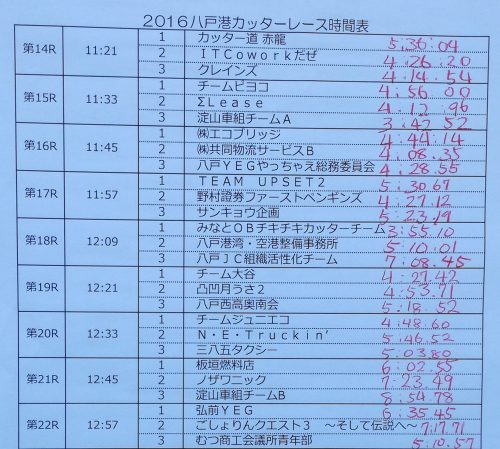 2016八戸港カッターレース時間表
第14R 11:21 1 カッター道 赤龍 5:36:04
2 ITCoworkだぜ 4:26:20
3 クレインズ 4:14.54
第15R 11:33 1 チームピヨコ 4:56.00
2 ΣLease 4:12.96
3 淀山車組チームA 3:47.52
第16R 11:45 1 ㈱エコブリッジ 4:44.14
2 ㈱共同物流サービスB 4.08.35
3 八戸YEGやっちゃえ総務委員会 4:28.55
第17R 11:57 1 TEAM UPSET2 5:30.67
2 野村證券ファーストペンギンズ 4:27.12
3 サンキョウ企画 5:23.19
第18R 12:09 1 みなとOBチキチキカッターチーム 3:55.10
2 八戸港湾・空港整備事務所 5:10.01
3 八戸JC組織活性化チーム 7:08.45
第19R 12:21 1 チーム大谷 4:27.42
2 凸凹月うさ2 4:53.71
3 八戸西高奥南会 5:18.52
第20R 12:33 1 チームジュニエコ 4:48.60
2 N・E・Truckin’ 5:46.52
3 三八五タクシー 5:03.80
第21R 12:45 1 板垣燃料店 6:02.55
2 ノザワニック 7:23.49
3 淀山車組チームB 8:54.78
第22R 12:57 1 弘前YEG 6:35.45
2 ごしょりんクエスト3 ～そして伝説へ～ 7:17.71
3 むつ商工会議所青年部 5:10.57